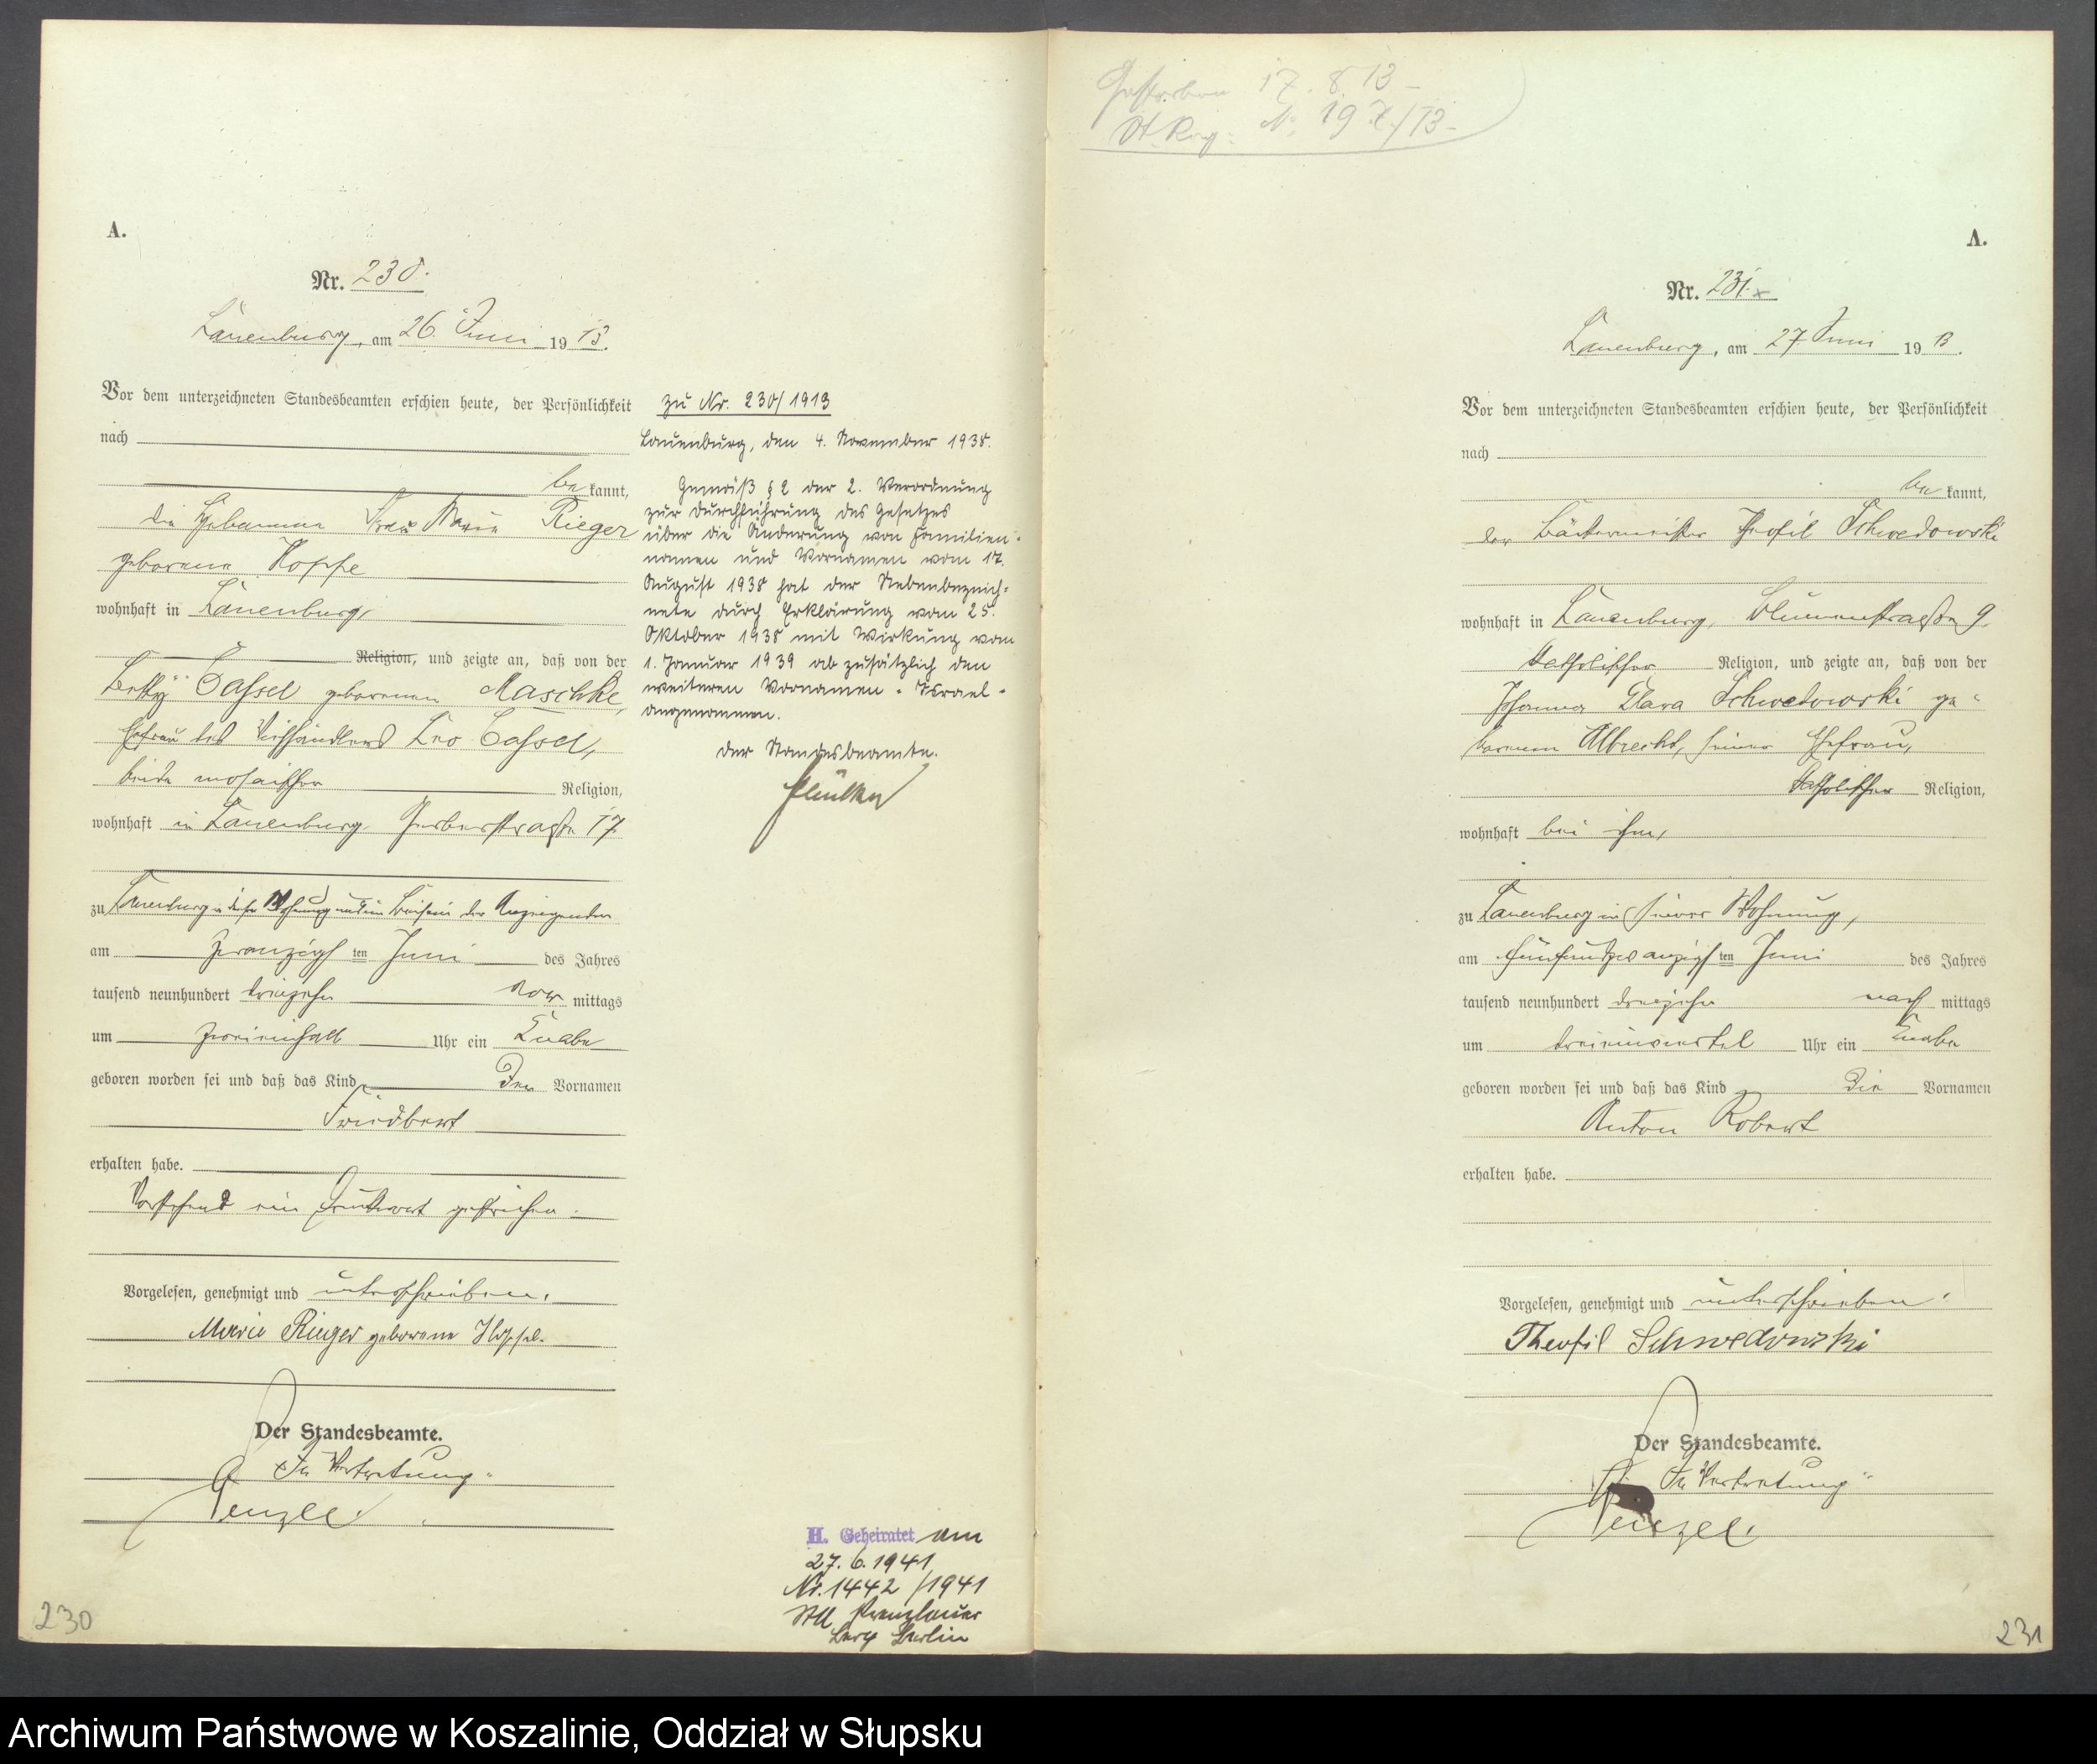 A.
Nr. 230.
Lauenburg, am 26. Juni 1913.
Vor dem unterzeichneten Standesbeamten erschien heute, der Persönlichkeit
nach
bekannt,
die Hebamme Frau Marie Rieger
geborene Hoppe
wohnhaft in Lauenburg,
Religion, und zeigte an, daß von der
Betty Cassel geborenen Maschke,
Ehefrau des Viehhändlers Leo Cassel,
beide mosaischer Religion,
wohnhaft in Lauenburg Gerberstraße 17
zu Lauenburg in dieser Wohnung und im Beisein der Anzeigenden
am zwanzigsten Juni des Jahres
tausend neunhundert dreizehn vormittags
um zweieinhalb Uhr ein Knabe
geboren worden sei und daß das Kind den Vornamen
Friedbert
erhalten habe.
Vorstehend ein Druckwort gestrichen.
Vorgelesen, genehmigt und unterschrieben.
Marie Rieger geborene Hoppe.
Der Standesbeamte.
In Vertretung.
Penzel.
230
zu Nr. 230/1913
Lauenburg, den 4. November 1938.
Gemäß § 2 der 2. Verordnung
zur Durchführung des Gesetzes
über die Änderung von Familien-
namen und Vornamen vom 17.
August 1938 hat der Nebenbezeich-
nete durch Erklärung vom 25.
Oktober 1938 mit Wirkung vom
1. Januar 1939 ab zusätzlich den
weiteren Vornamen "Israel"
angenommen.
Der Standesbeamte.
H. Geheiratet am
27. 6. 1941
Nr. 1442/1941
StA Prenzlauer
Berg Berlin
Gestorben 17. 8. 13
St. Reg: Nr. 197/13
A.
Nr. 231.
Lauenburg, am 27 Juni 1913.
Vor dem unterzeichneten Standesbeamten erschien heute, der Persönlichkeit
nach
bekannt,
der Bäckermeister Theofil Schwedowski
wohnhaft in Lauenburg, Blumenstraße 9.
katholischer Religion, und zeigte an, daß von der
Johanna Clara Schwedowski ge-
borenen Albrecht, seiner Ehefrau,
katholischer Religion,
wohnhaft bei ihm,
zu Lauenburg in seiner Wohnung,
am fünfundzwanzigsten Juni des Jahres
tausend neunhundert dreizehn nachmittags
um dreieinviertel Uhr ein Knabe
geboren worden sei und daß das Kind die Vornamen
Anton Robert
erhalten habe.
Vorgelesen, genehmigt und unterschrieben.
Theofil Schwedowski
Der Standesbeamte.
In Vertretung
Penzel.
231
Archiwum Państwowe w Koszalinie, Oddział w Słupsku